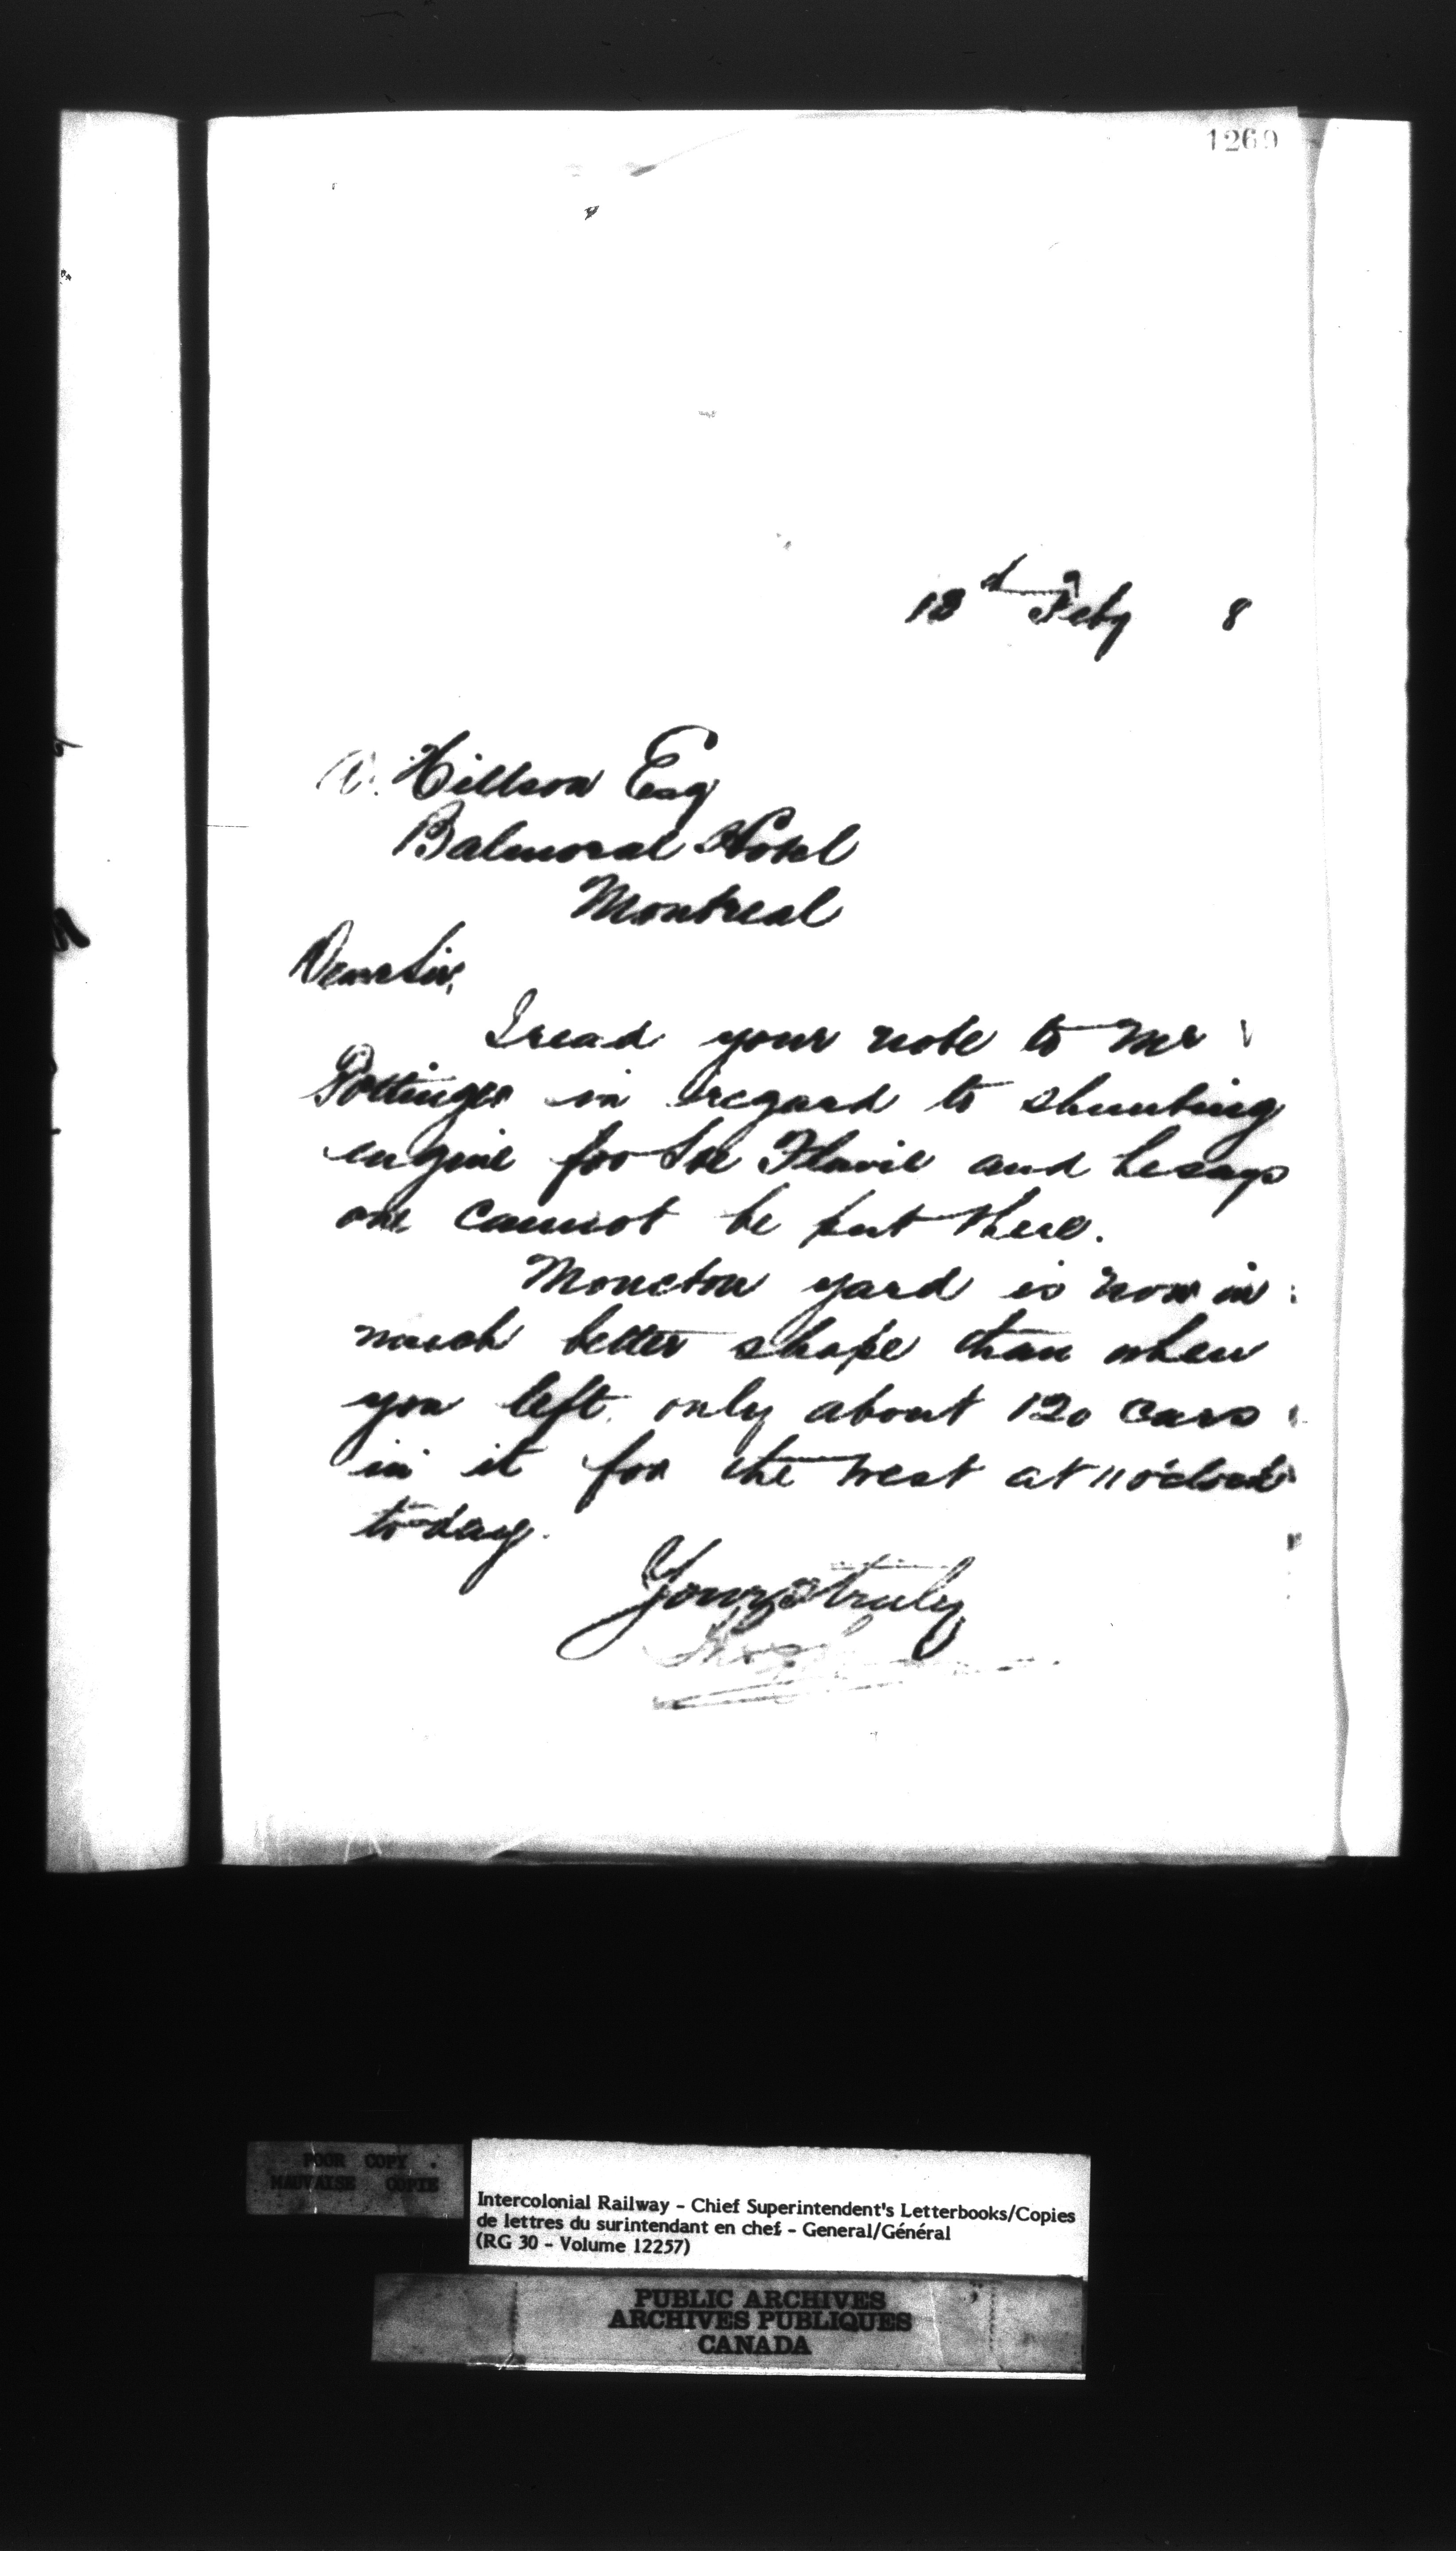 1269
13th Feby 8
A. Hillson Esq
Balmoral Hotel
Montreal
Dear Sir,
I read your note to Mr
Pottinger in regard to shunting
engine for Ste Flavie and he says
one cannot be put there.
Moncton yard is now in
much better shape than when
you left, only about 120 cars
in it for the west at 11 o'clock
to-day.
Yours truly
POOR COPY
MAUVAISE COPIE
Intercolonial Railway - Chief Superintendent's Letterbooks/Copies
de lettres du surintendant en chef - General/Général
(RG 30 - Volume 12257)
PUBLIC ARCHIVES
ARCHIVES PUBLIQUES
CANADA